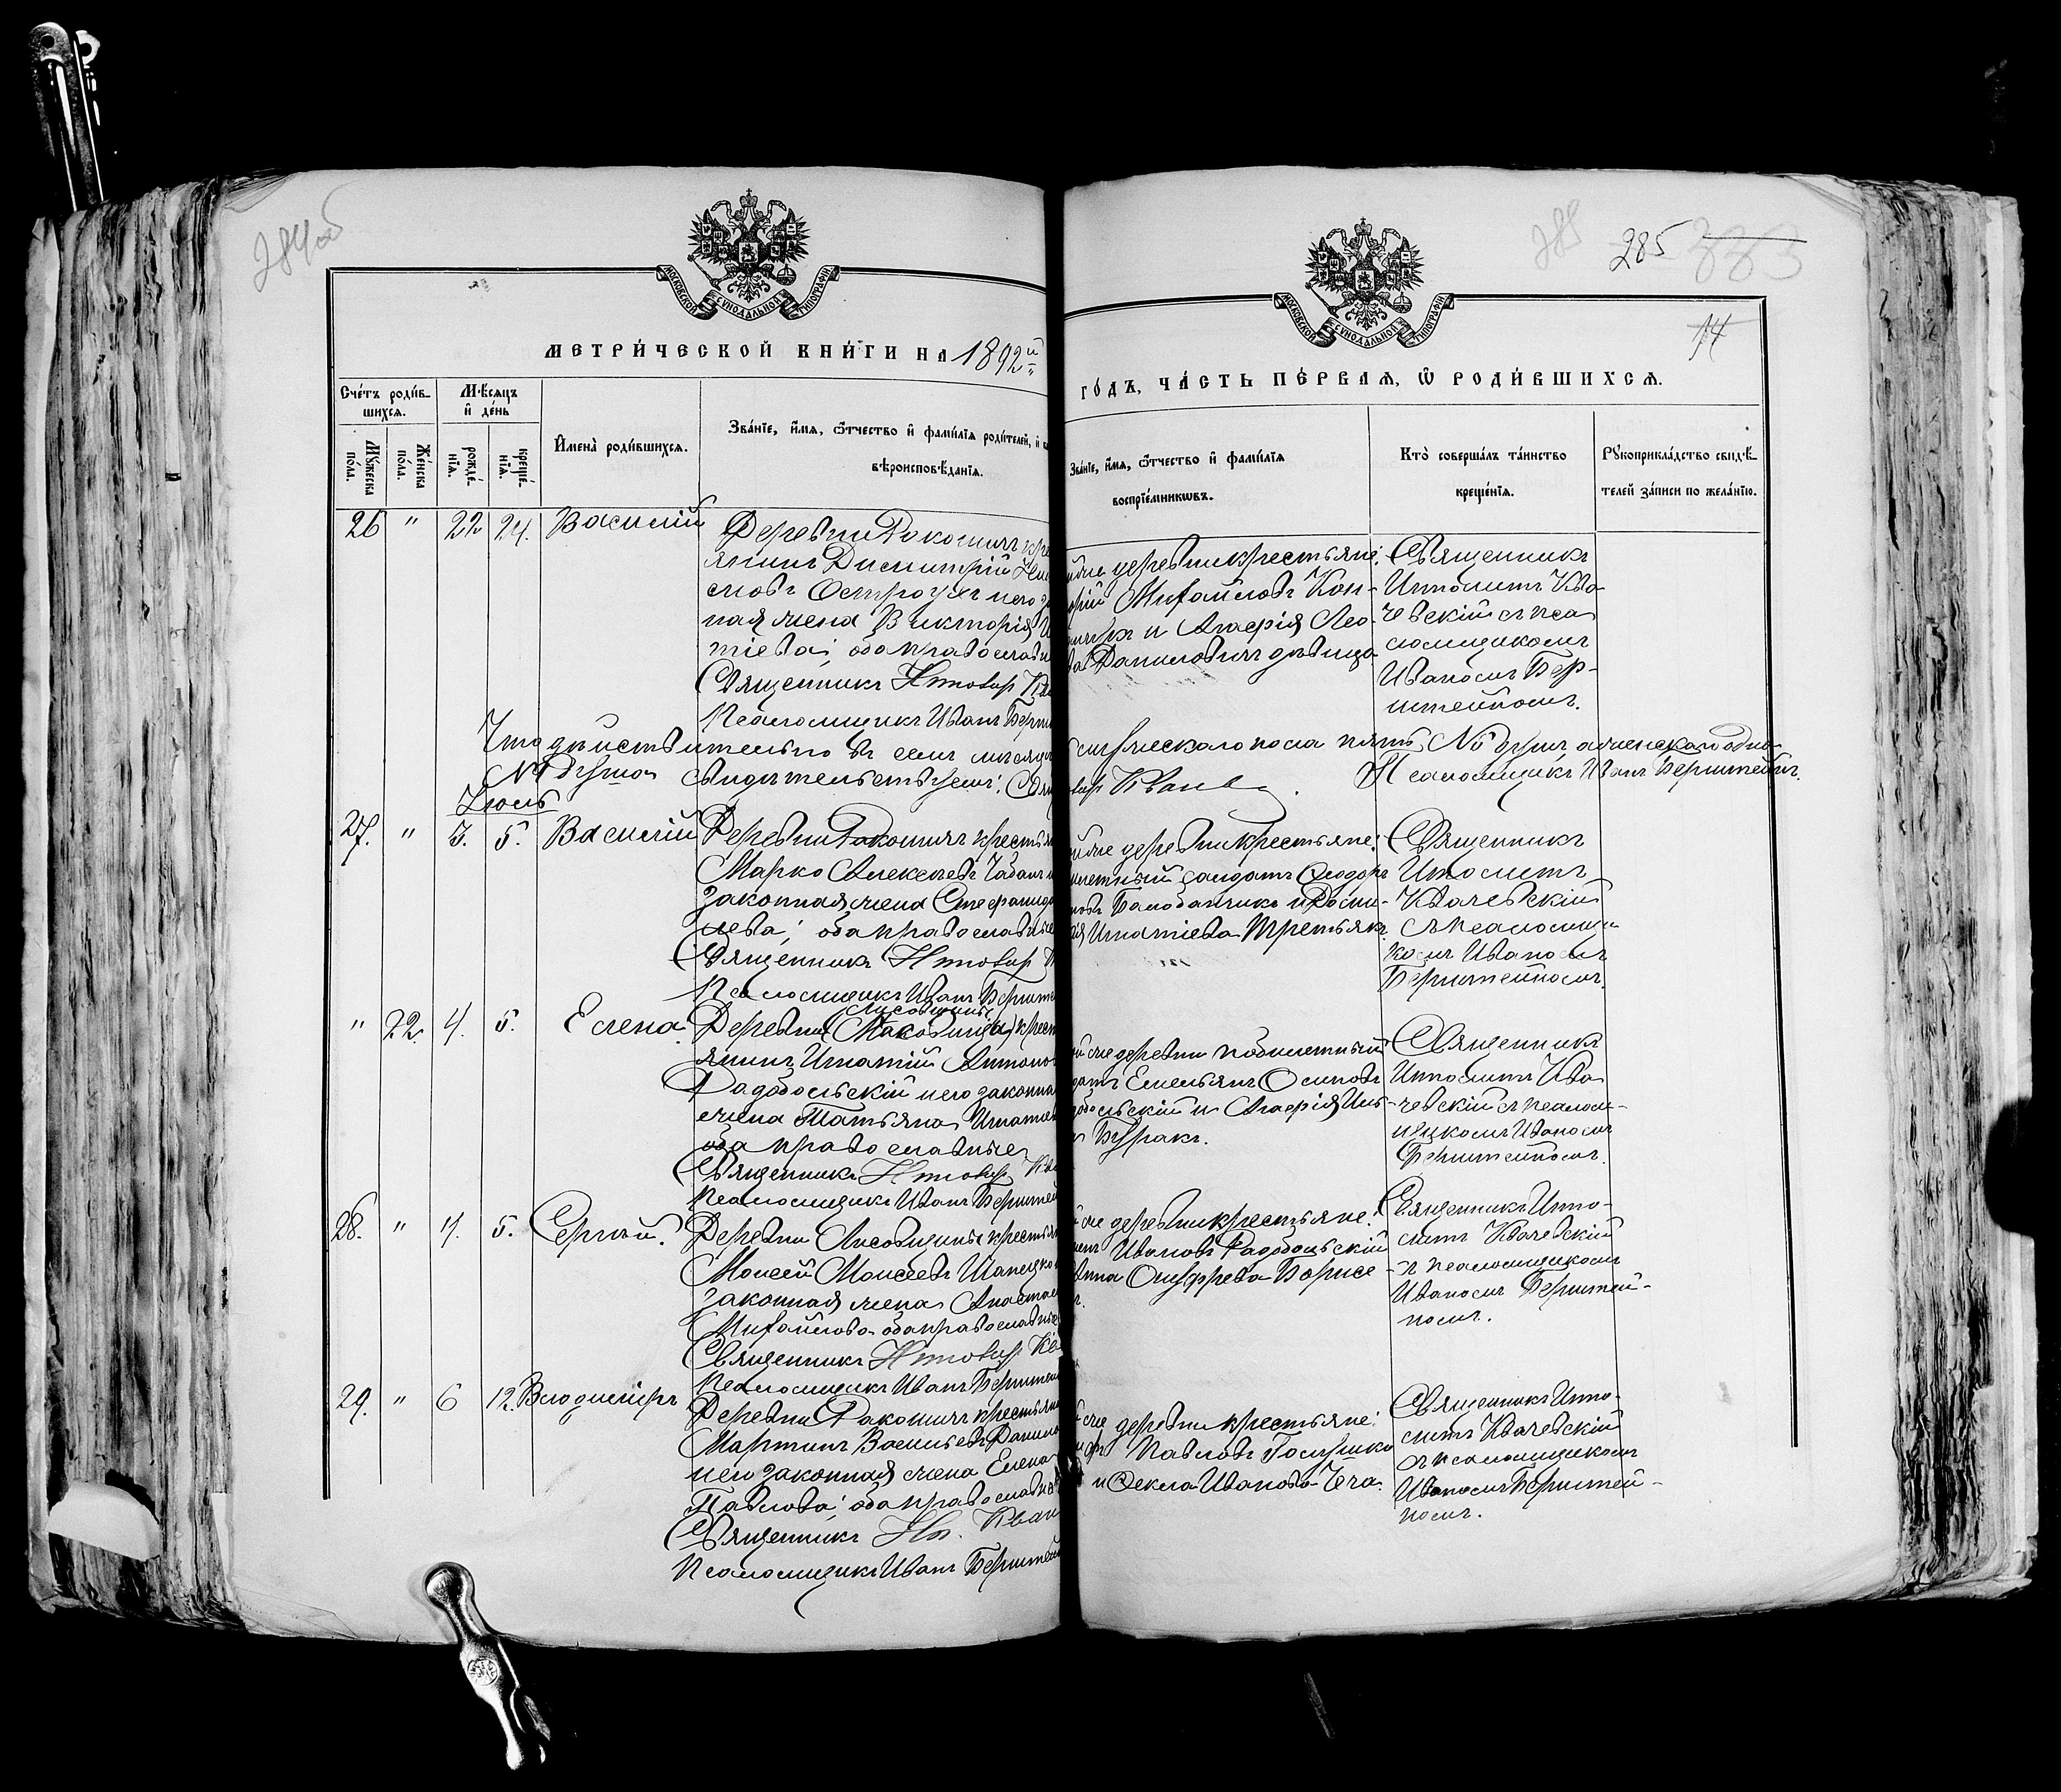 284об
МОСКОВСКОЙ СУНОДАЛЬНОЙ ТИПОГРАФІИ
МЕТРИЧЕСКОЙ КНИГИ НА 1892й
Счетъ родив-
шихся.
Мѣсяцъ
и день
Мужеска
пола.
Женска
пола.
рожде-
нія.
креще-
нія.
Имена родившихся.
Званіе, имя, отчество и фамилія родителей, и
вѣроисповѣданія.
26 " 22 24. Василій
Деревни Ракошичъ кре
янинъ Димитрій
новъ Остроухъ и его за
ная жена Викторія И
тіева; оба православн
Священникъ Иполит Кв
Псаломщикъ Иванъ Берш
Что дѣйствительно въ семъ мѣсяцѣ
свидѣтельствуемъ: Свящ
Іюль
27. " 3. 5. Василій
Деревни Ракошичъ крестья
Марко Алексѣевъ Чабанъ и
законная жена Стефанида
лева; оба православные
Священникъ Иполит К
Псаломщикъ Иванъ Бершт
" 22. 4. 5. Елена.
Лисовщины
Деревни (Маковища) крест
янинъ Игнатій Антонов
Радобольскій и его законна
жена Татьяна Игнатов
оба православные
Священникъ Иполит Кв
Псаломщикъ Иванъ Берштей
28. " 4. 5. Сергѣй.
Деревни Лисовщины крестья
Моисей Моисеевъ Шапецко
законная жена Анастас
Михайлова оба православные
Священникъ Иполит Кв
Псаломщикъ Иванъ Берштей
29. " 6 12. Владиміръ
Деревни Ракошичъ крестьян
Мартинъ Васильевъ Данило
и его законная жена Елена
Павлова; оба православн
Священникъ Ип. Квач
Псаломщикъ Иванъ Берштей
285 285
14
МОСКОВСКОЙ СУНОДАЛЬНОЙ ТИПОГРАФІИ
ГОДЪ, ЧАСТЬ ПЕРВАЯ, Ѡ РОДИВШИХСЯ.
Званіе, имя, отчество и фамилія
воспріемниковъ.
Кто совершалъ таинство
крещенія.
Рукоприкладство свидѣ-
телей записи по желанію.
деревни крестьяне:
Михайловъ Кон-
и Агафія Лео-
Даниловичъ дѣвица
Священникъ
Ипполитъ Ква-
чевскій съ пса
ломщикомъ
Иваномъ Бер-
штейномъ.
мужескаго пола пять № душъ а женскаго одна
Псаломщикъ Иванъ Берштейнъ.
деревни крестьяне:
солдатъ Ѳеодоръ
Балабанчикъ и
Игнатіева Третьякъ
Священникъ
Иполитъ
Квачевскій
съ псаломщи
комъ Иваномъ
Берштейномъ.
деревни побилетный
Емельянъ Осиповъ
и Агафія
Буракъ.
Священникъ
Ипполитъ Ква
чевскій съ псалом-
щикомъ Иваномъ
Берштейномъ.
деревни крестьяне:
Ивановъ Радобольскій
Онуфрева Борисе-
Священникъ Иппо-
литъ Квачевскій
съ псаломщикомъ
Иваномъ Берштей-
номъ.
деревни крестьяне:
Павловъ Галушко
и Ѳекла Иванова
Священникъ Иппо-
литъ Квачевскій
съ псаломщикомъ
Иваномъ Берштей-
номъ.